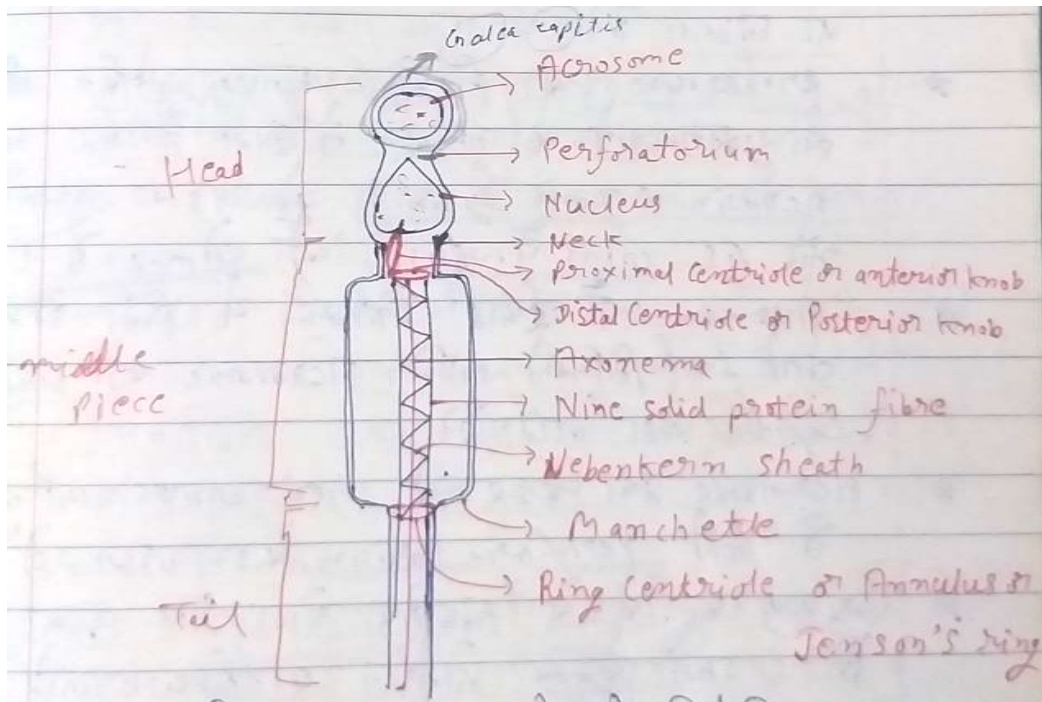 Galea capitis
Acrosome
Perforatorium
Head
Nucleus
Neck
Proximal Centriole or anterior knob
Distal Centriole or Posterior knob
Axonema
middle
Piece
Nine solid protein fibre
Nebenkern sheath
Manchette
Ring Centriole or Annulus or
Tail
Jenson's ring